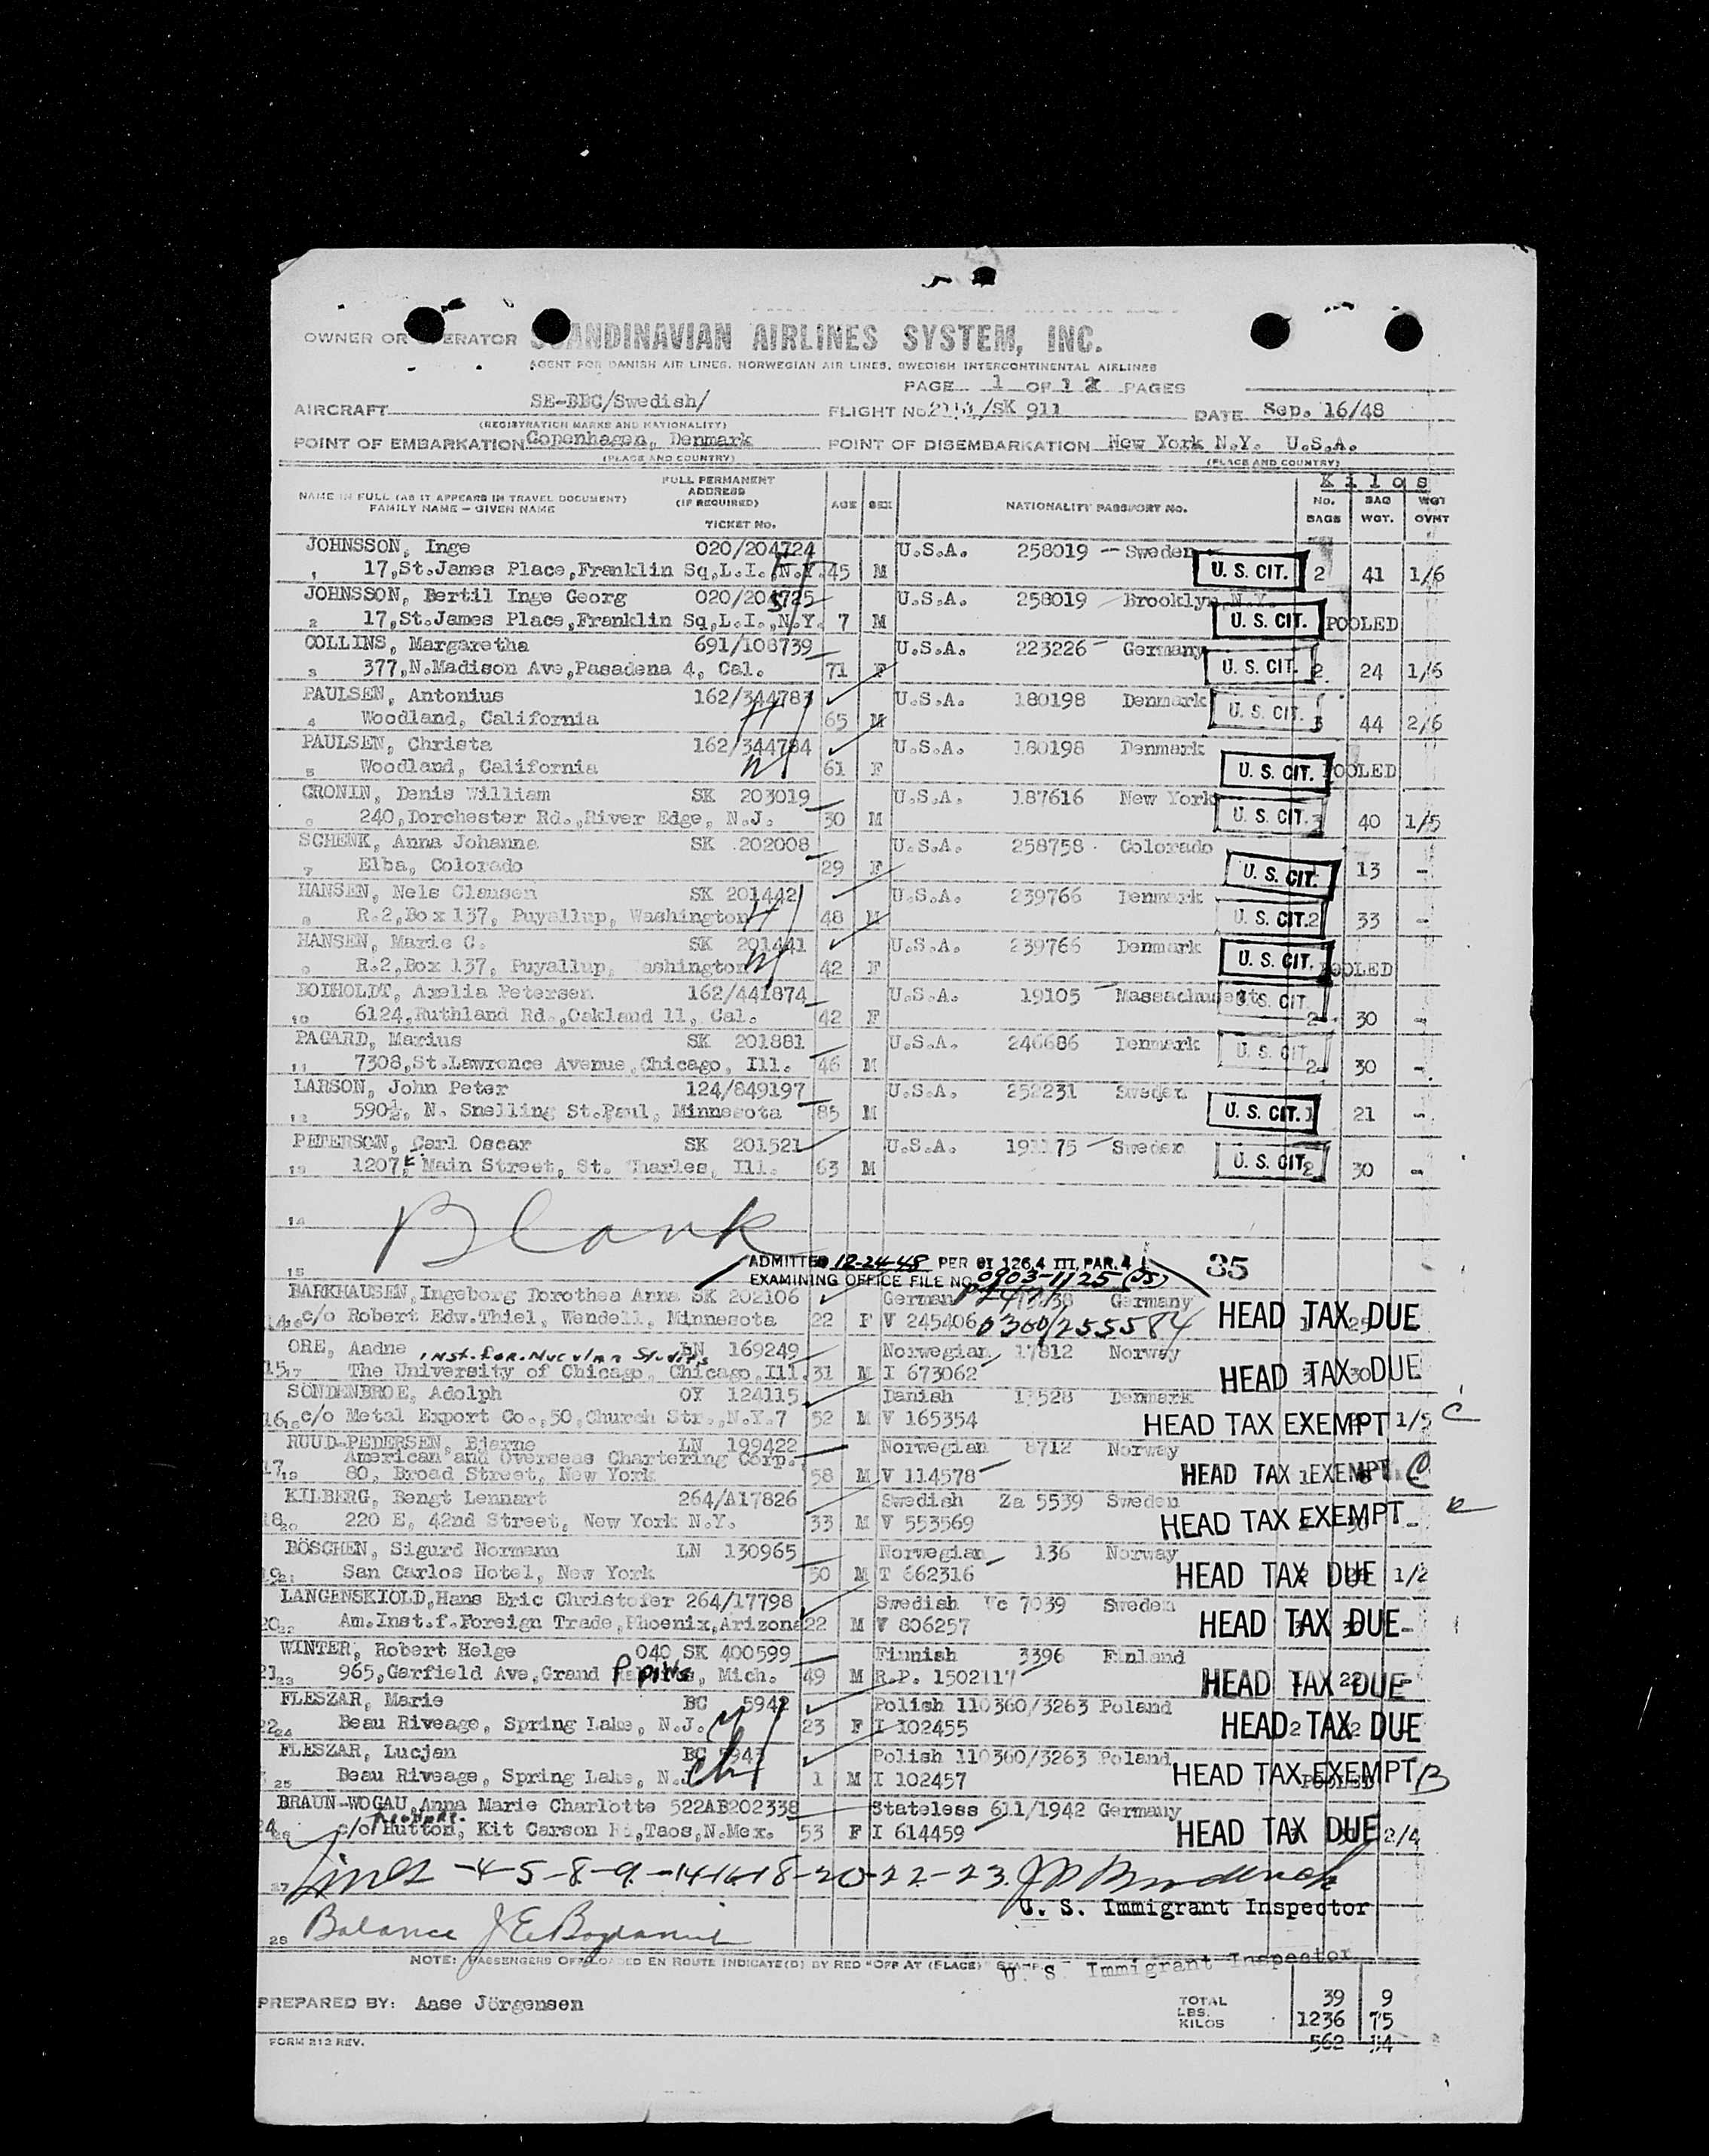 OWNER OR OPERATOR SCANDINAVIAN AIRLINES SYSTEM, INC.
AGENT FOR DANISH AIR LINES, NORWEGIAN AIR LINES, SWEDISH INTERCONTINENTAL AIRLINES
PAGE 1 OF 1 PAGES
AIRCRAFT SE-BBC/Swedish/ FLIGHT No. /SK 911 DATE Sep. 16/48
(REGISTRATION MARKS AND NATIONALITY)
POINT OF EMBARKATION Copenhagen, Denmark POINT OF DISEMBARKATION New York N.Y. U.S.A.
(PLACE AND COUNTRY) (PLACE AND COUNTRY)
Kilos
NAME IN FULL (AS IT APPEARS IN TRAVEL DOCUMENT) FULL PERMANENT ADDRESS (IF REQUIRED) AGE SEX NATIONALITY PASSPORT NO. No. BAGS BAG WGT. WGT OVWT
FAMILY NAME — GIVEN NAME TICKET No.
JOHNSSON, Inge 020/204724 U.S.A. 258019 — Sweden
1 17,St.James Place,Franklin Sq,L.I.,N.Y. 45 M U. S. CIT. 2 41 1/6
JOHNSSON, Bertil Inge Georg 020/204725 U.S.A. 258019 Brooklyn N.Y.
2 17,St.James Place,Franklin Sq,L.I.,N.Y. 7 M U. S. CIT. POOLED
COLLINS, Margaretha 691/108739 U.S.A. 223226 Germany
3 377,N.Madison Ave,Pasadena 4, Cal. 71 F U. S. CIT. 2 24 1/6
PAULSEN, Antonius 162/344783 U.S.A. 180198 Denmark
4 Woodland, California 65 M U. S. CIT. 3 44 2/6
PAULSEN, Christa 162/344784 U.S.A. 180198 Denmark
5 Woodland, California 61 F U. S. CIT. POOLED
CRONIN, Denis William SK 203019 U.S.A. 187616 New York
6 240,Dorchester Rd.,River Edge, N.J. 30 M U. S. CIT. 3 40 1/5
SCHENK, Anna Johanne SK 202008 U.S.A. 258758 Colorado
7 Elba, Colorado 29 F U. S. CIT. 13 -
HANSEN, Nels Clausen SK 201442 U.S.A. 239766 Denmark
8 R.2,Box 137, Puyallup, Washington 48 M U. S. CIT. 2 33 -
HANSEN, Marie C. SK 201441 U.S.A. 239766 Denmark
9 R.2,Box 137, Puyallup, Washington 42 F U. S. CIT. POOLED
BODHOLDT, Axelia Petersen 162/441874 U.S.A. 19105 Massachusett
10 6124,Ruthland Rd.,Oakland 11, Cal. 42 F U. S. CIT. 2 30 -
PAGARD, Marius SK 201881 U.S.A. 246686 Denmark
11 7308,St.Lawrence Avenue,Chicago, Ill. 46 M U. S. CIT. 2 30 -
LARSON, John Peter 124/849197 U.S.A. 252231 Sweden
12 590½, N. Snelling St.Paul, Minnesota 85 M U. S. CIT. 1 21 -
PETERSON, Carl Oscar SK 201521 U.S.A. 191175 Sweden
13 1207 E Main Street, St. Charles, Ill. 63 M U. S. CIT. 2 30 -
14 Blank
ADMITTED 12-24-48 PER OI 126.4 III, PAR. 4 35
15 EXAMINING OFFICE FILE NO. 0903-11125
BARKHAUSEN, Ingeborg Dorothea Anna SK 202106 German Germany
14 16 c/o Robert Edw.Thiel, Wendell, Minnesota 22 F V 245406 0300/255584 HEAD TAX DUE
ORE, Aadne Inst. for Nuclear Studies LN 169249 Norwegian 17812 Norway
15 17 The University of Chicago, Chicago,Ill. 31 M I 673062 HEAD TAX DUE
SONDENBROE, Adolph OY 124115 Danish 13528 Denmark
16 18 c/o Metal Export Co.,50,Church Str.,N.Y.7 52 M V 165354 HEAD TAX EXEMPT 1/5 C
RUUD-PEDERSEN, Bjarne LN 199422 Norwegian 8712 Norway
American and Overseas Chartering Corp.,
17 19 80, Broad Street, New York 58 M V 114578 HEAD TAX EXEMPT C
KILBERG, Bengt Lennart 264/A17826 Swedish Za 5539 Sweden
18 20 220 E, 42nd Street, New York N.Y. 33 M V 553569 HEAD TAX EXEMPT -
BÖSCHEN, Sigurd Normann LN 130965 Norwegian 136 Norway
19 21 San Carlos Hotel, New York 50 M T 662316 HEAD TAX DUE 1/2
LANGENSKIOLD,Hans Eric Christofer 264/17798 Swedish Vc 7039 Sweden
20 22 Am.Inst.f.Foreign Trade,Phoenix,Arizona 22 M V 806257 HEAD TAX DUE -
WINTER, Robert Helge 040 SK 400599 Finnish 3396 Finland
21 23 965,Garfield Ave,Grand Rapids, Mich. 49 M R.P. 1502117 HEAD TAX DUE
FLESZAR, Marie BC 5942 Polish 110360/3263 Poland
22 24 Beau Riveage, Spring Lake, N.J. 23 F I 102455 HEAD TAX DUE
FLESZAR, Lucjan BC 5943 Polish 110360/3263 Poland
25 Beau Riveage, Spring Lake, N.J. ch 1 M I 102457 HEAD TAX EXEMPT B
BRAUN-WOGAU,Anna Marie Charlotte 522AB202338 Stateless 611/1942 Germany
24 26 c/o Hutton, Kit Carson Rd,Taos,N.Mex. 53 F I 614459 HEAD TAX DUE 2/4
27 Lines -4-5-8-9-14-16-18-20-22-23.
U. S. Immigrant Inspector
28 Balance
NOTE: PASSENGERS OFFLOADED EN ROUTE INDICATE(D) BY RED "OFF AT (PLACE)" STAMP.
U. S. Immigrant Inspector
PREPARED BY: Aase Jörgensen TOTAL 39 9
LBS. 1236 75
KILOS 562 34
FORM 212 REV.